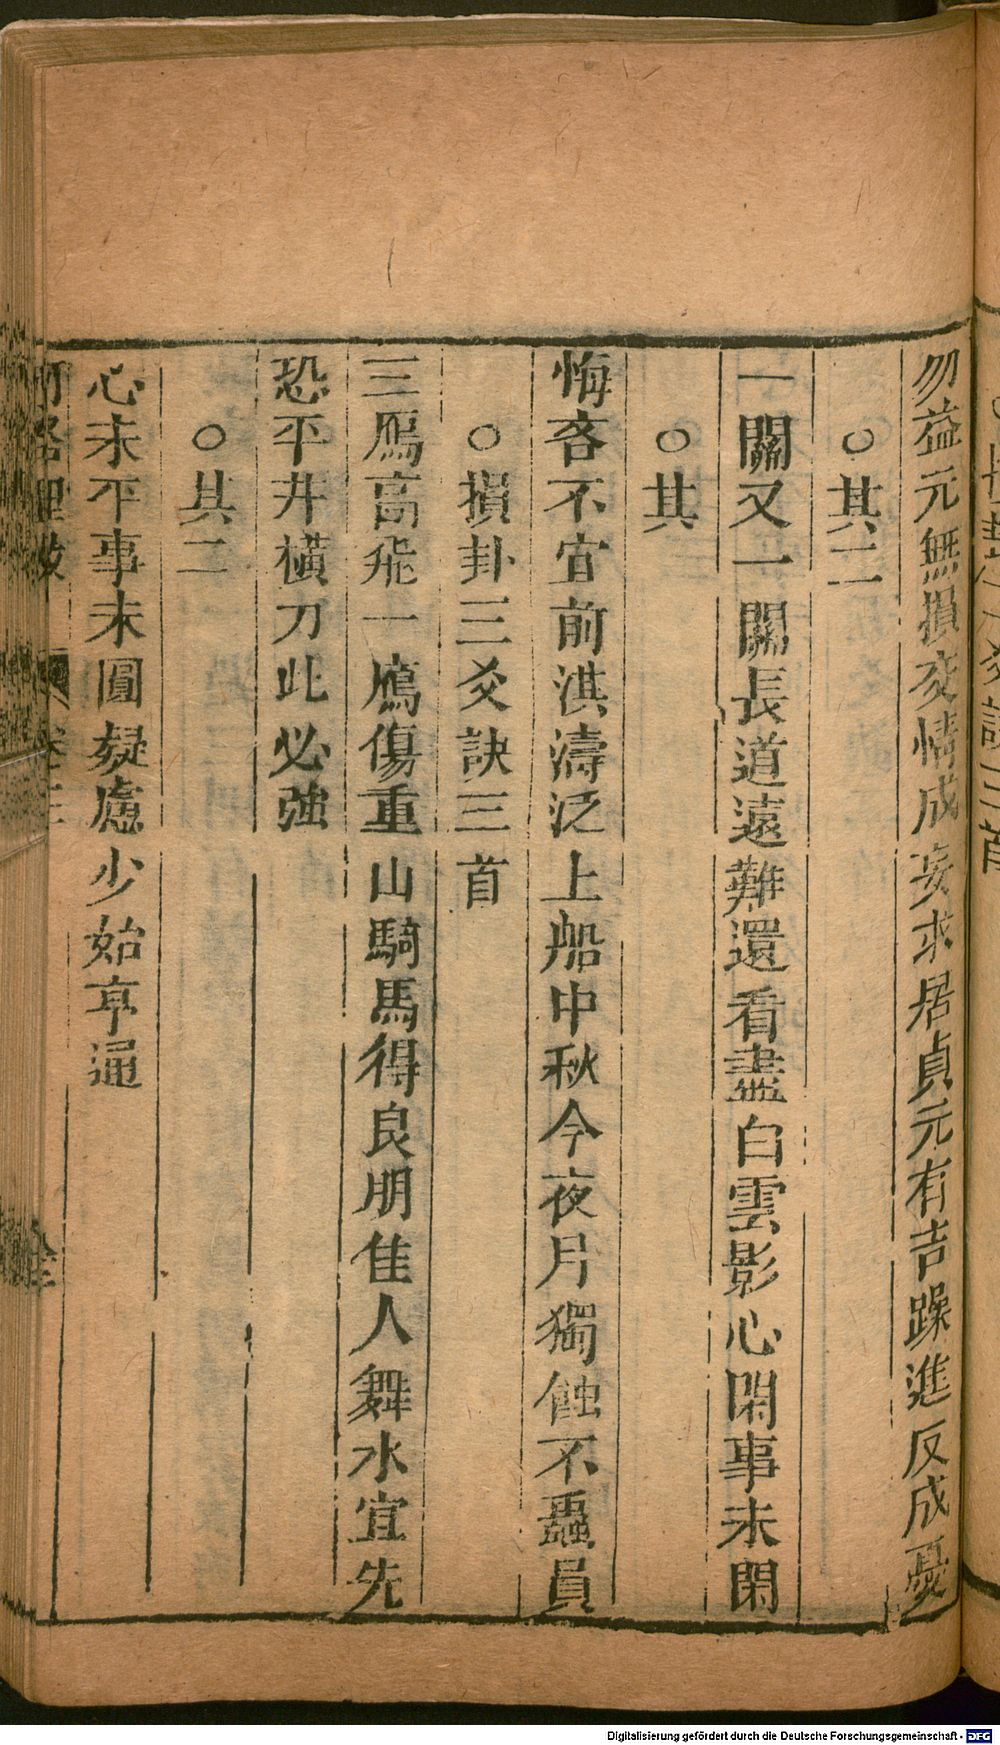 勿益元無損交情成妄求居貞元有吉躁進反成憂
○其二
一關又一關長道遠難還看盡白雲影心閑事未閑
○其
悔吝不宜前淇濤泛上船中秋今夜片獨蝕不蟸員
○損卦三爻訣三首
三鴈高飛一鴈傷重山騎馬得良朋佳人舞水宜先
恐平井橫刀此必強
○其二
心未平事未圓疑慮少始亨通
卷三
Digitalisierung gefördert durch die Deutsche Forschungsgemeinschaft - DFG